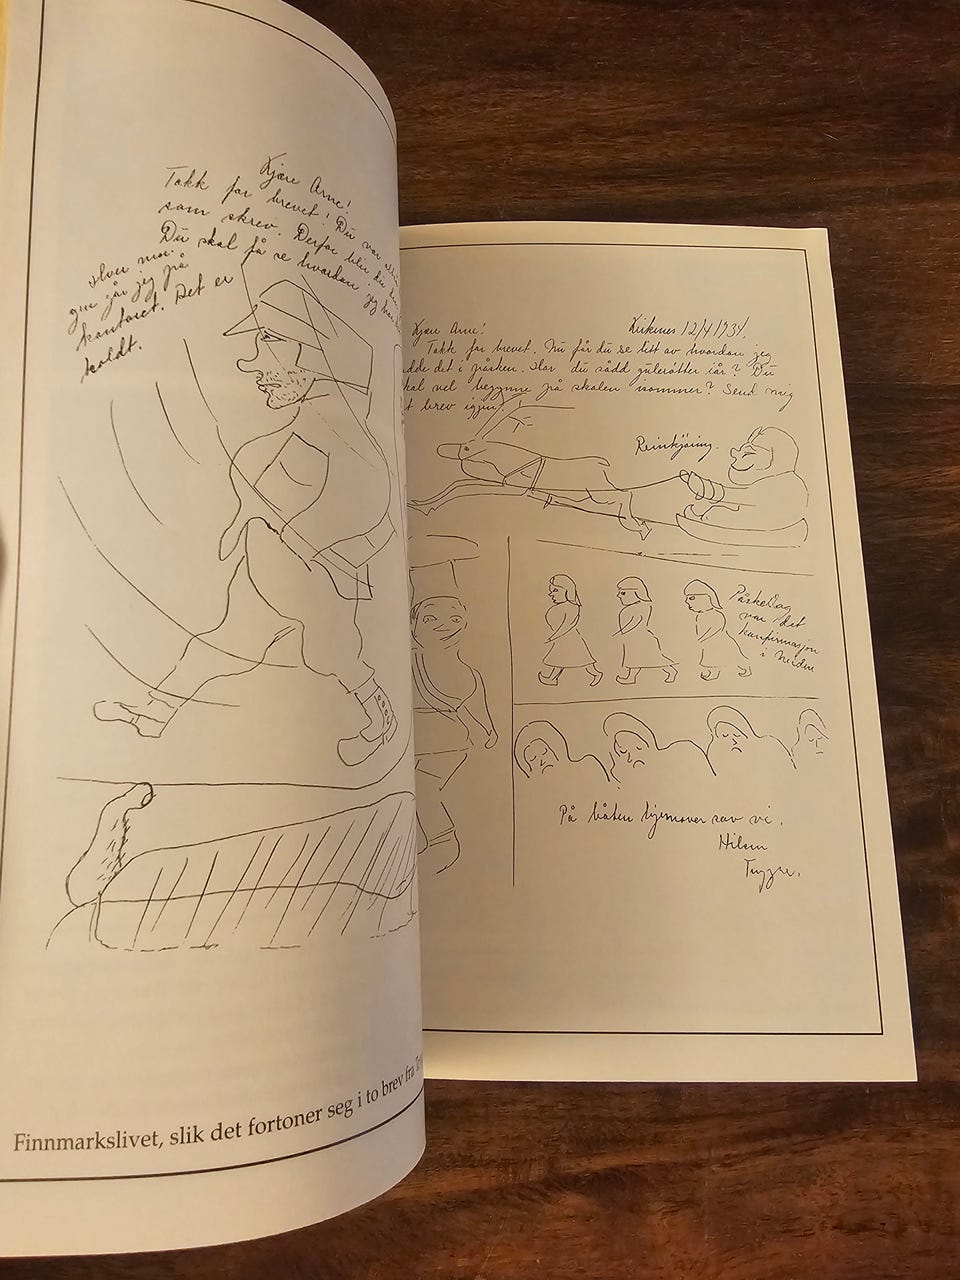 Kjære Arne!
Takk for brevet! Du var
som skrev. Derfor blir du
Du skal få se hvordan jeg
hver mor-
gen går jeg på
kontoret. Det er
koldt.
Finnmarkslivet, slik det fortoner seg i to brev fra
Kjære Arne! Kirkenes 12/4 1934.
Takk for brevet. Nu får du se litt av hvordan jeg
det i påsken. Har du sådd gulerøtter iår? Du
vel begynne på skolen isommer? Send mig
brev igjen.
Reinkjøring.
Påskedag
var det
konfirmasjon
i Neiden
På båten hjemover sov vi.
Hilsen
Trygve.